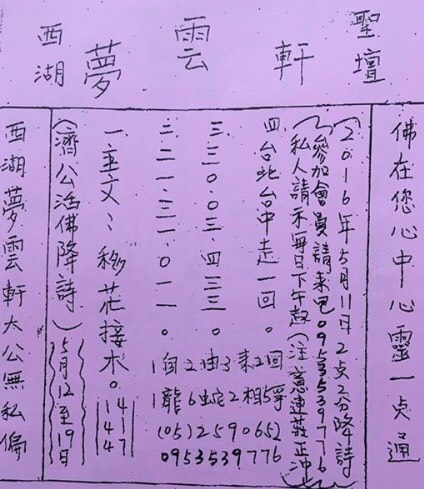 聖壇
西湖夢雲軒
佛在您心中心靈一点通
(2016年5月11日2点2分降詩)
(參加會員請來電0953539776
私人請示每日下午起(注意連莊正沖)
四台北台中走一回。
三.三0.0三.四三三。
三.二一.三一.0一一。
一.主文:移花接木。
(濟公活佛降詩)5月12至19日
西湖夢雲軒大公無私偏
14
14
47
1狗2油3來2回
1龍6蛇2相5浮
(05)2590652
0953539776